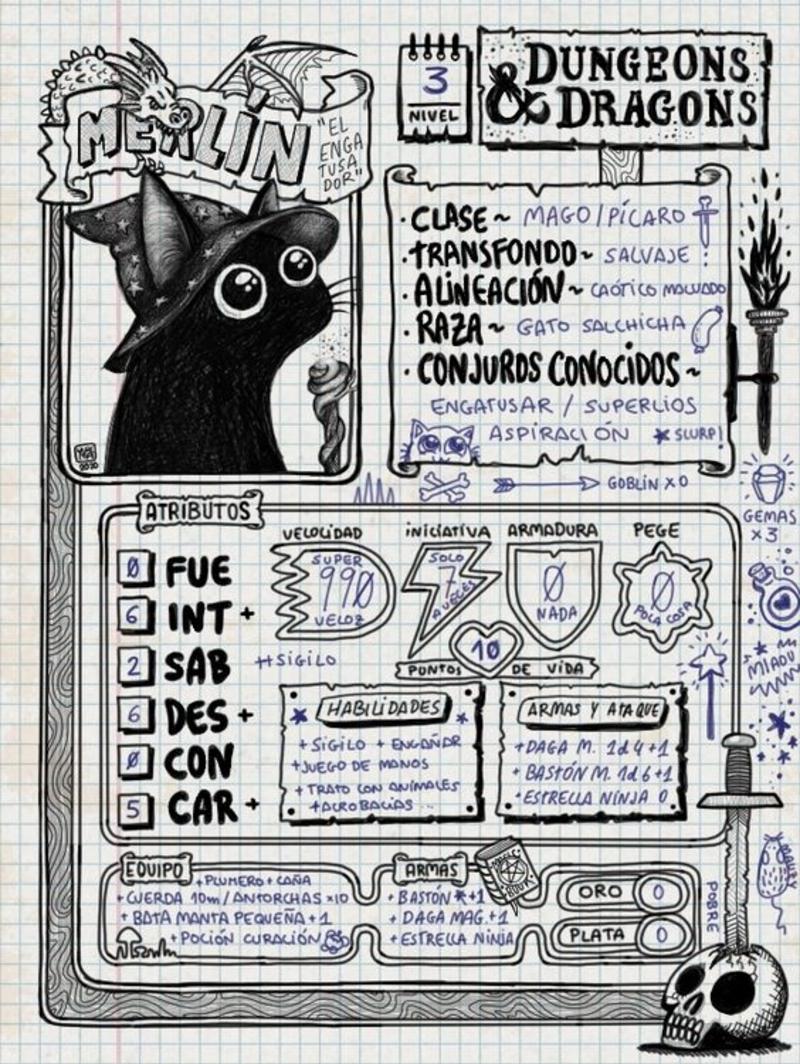 MERLÍN
"EL
ENGA
TUSA
DOR"
3
NIVEL
DUNGEONS
& DRAGONS
· CLASE ~ MAGO / PÍCARO
· TRANSFONDO ~ SALVAJE
· ALINEACIÓN ~ CAÓTICO MALVADO
· RAZA ~ GATO SALCHICHA
· CONJUROS CONOCIDOS ~
ENGATUSAR / SUPERLIOS
ASPIRACIÓN * SLURP!
2020
GOBLIN X0
GEMAS
X3
ATRIBUTOS
0 FUE
6 INT +
2 SAB ++SIGILO
6 DES +
0 CON
5 CAR +
VELOCIDAD
SUPER
990
VELOZ
INICIATIVA
SOLO
7
A VECES
ARMADURA
0
NADA
PEGE
0
POCA COSA
10
PUNTOS DE VIDA
MIAOU
HABILIDADES
+ SIGILO + ENGAÑAR
+ JUEGO DE MANOS
+ TRATO CON ANIMALES
+ ACROBACIAS ...
ARMAS Y ATAQUE
+ DAGA M. 1d4+1
+ BASTÓN M. 1d6+1
+ ESTRELLA NINJA 0
EQUIPO
+ PLUMERO + CAÑA
+ CUERDA 10m / ANTORCHAS x10
+ BATA MANTA PEQUEÑA +1
+ POCIÓN CURACIÓN
ARMAS
+ BASTÓN * +1
+ DAGA MAG. +1
+ ESTRELLA NINJA
MAGIC
BOOK
ORO 0
PLATA 0
POBRE